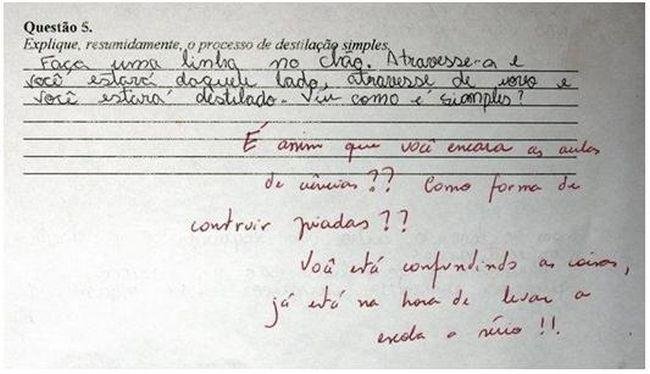 Questão 5.
Explique, resumidamente, o processo de destilação simples.
Faça uma linha no chão. Atravesse-a e
você estará daquele lado, atravesse de novo e
você estará destilado. Viu como é siomples?
É assim que você encara as aulas
de ciências?? Como forma de
contruir piadas??
Você está confundindo as coisas,
já está na hora de levar a
escola a sério!!.